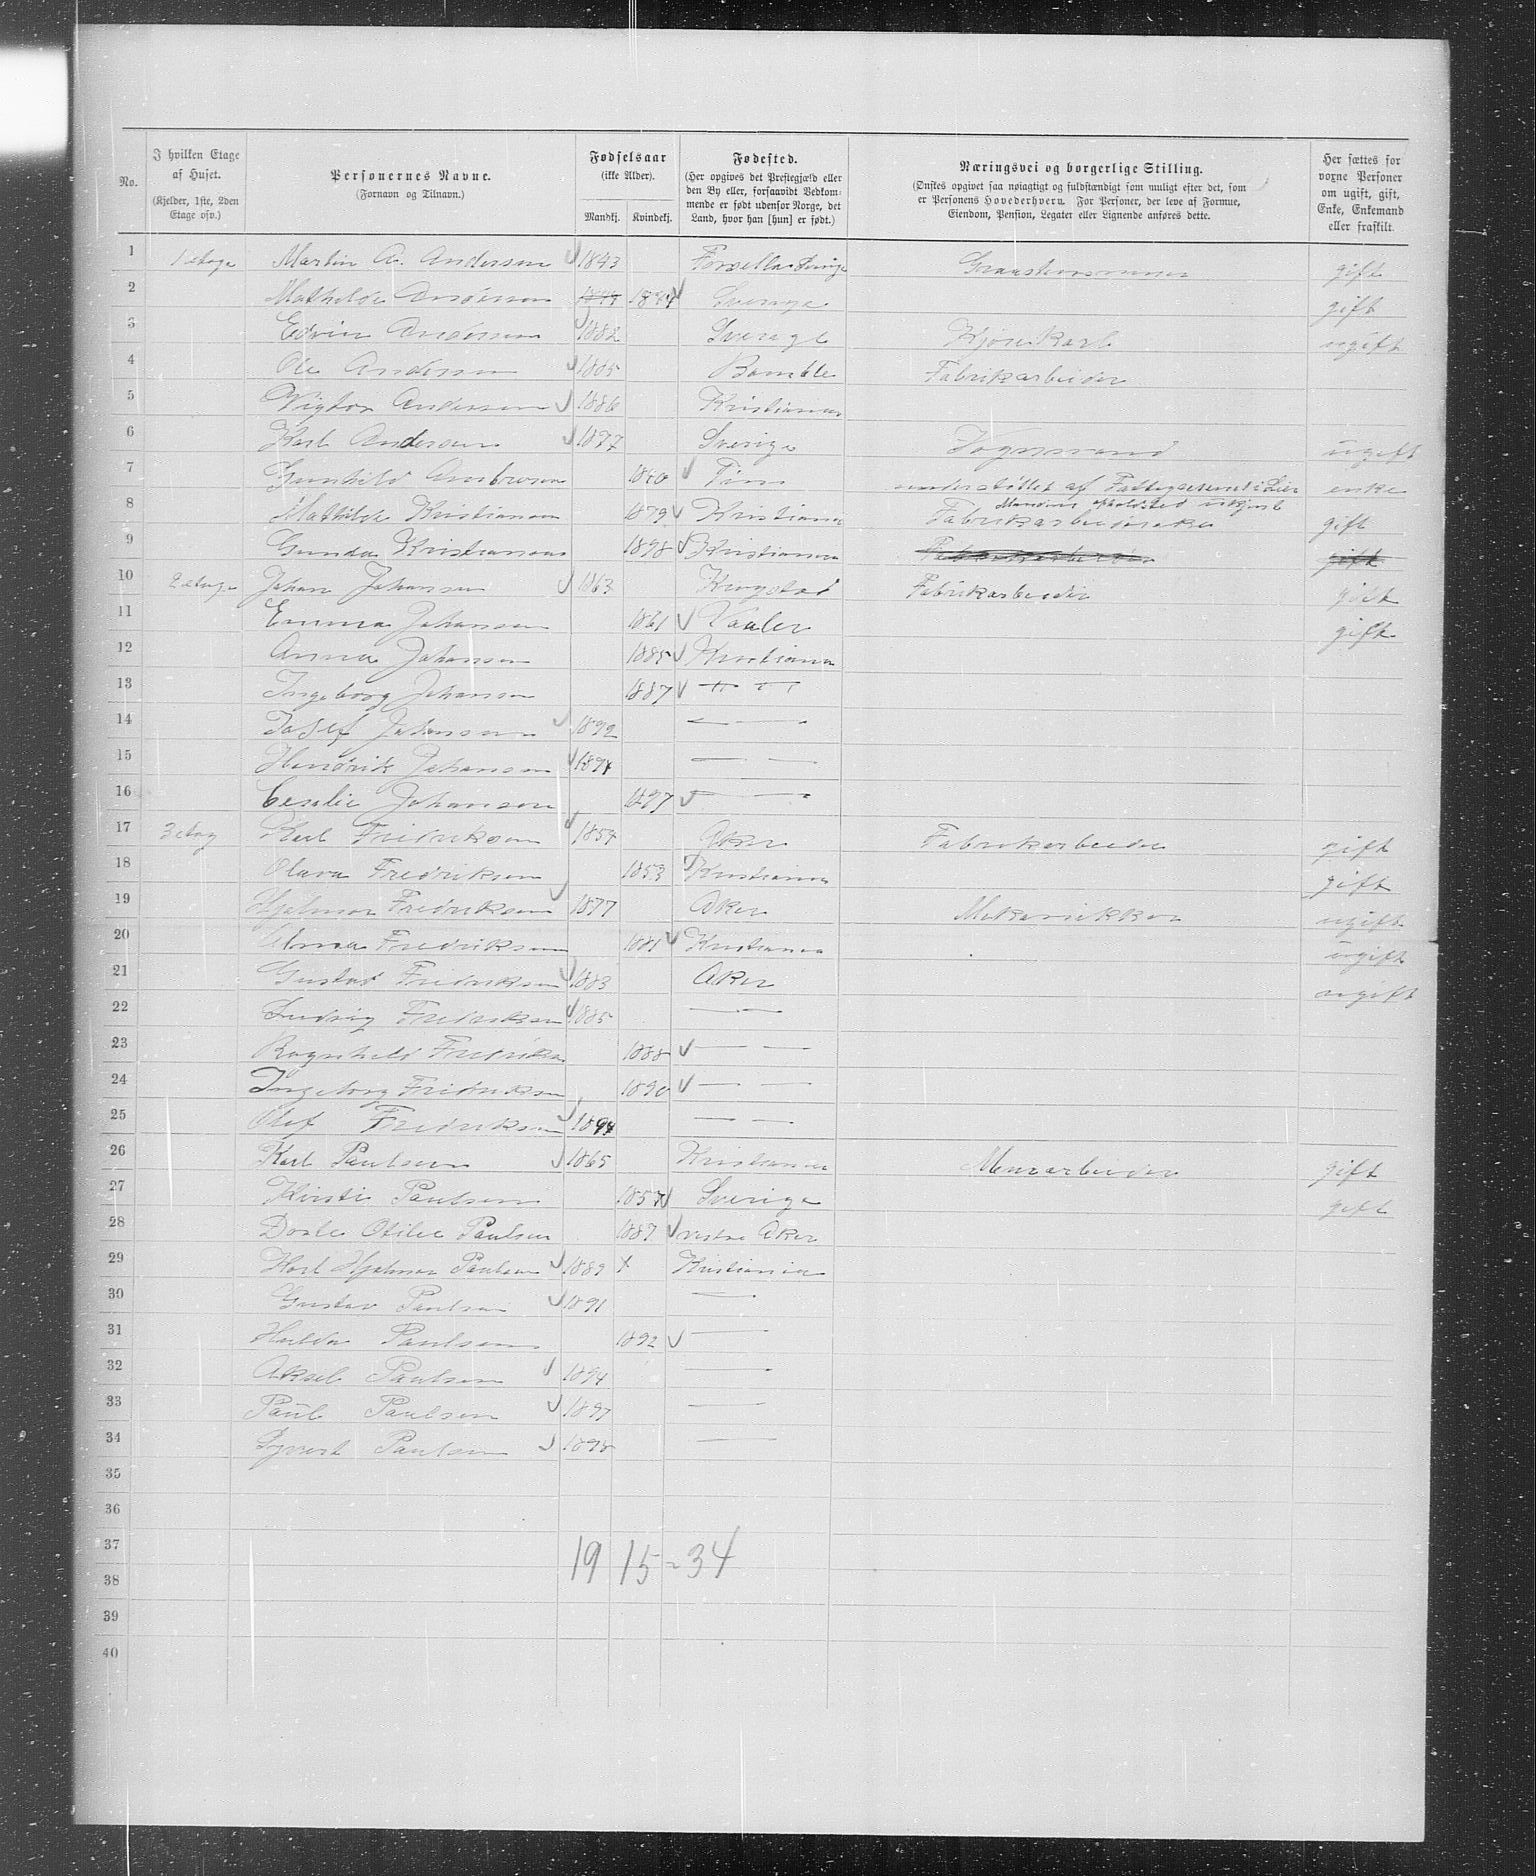 No.
I hvilken Etage af Huset. (Kjelder, 1ste, 2den Etage osv.)
Personernes Navne. (Fornavn og Tilnavn.)
Fødselsaar (ikke Alder). Mandkj. Kvindekj.
Fødested. (Her opgives det Prestegjæld eller den By eller, forsaavidt Vedkommende er født udenfor Norge, det Land, hvor han [hun] er født.)
Næringsvei og borgerlige Stilling. (Ønskes opgivet saa nøiagtigt og fuldstændigt som muligt efter det, som er Personens Hovederhverv. For Personer, der leve af Formue, Eiendom, Pension, Legater eller Lignende anføres dette.)
Her sættes for voxne Personer om ugift, gift, Enke, Enkemand eller fraskilt.
1 1 etage Martin A. Anderson 1843 Sverige gift
2 Mathilde Anderson 1844 Sverige gift
3 Edvin Anderson 1882 Sverige Kjørekarl ugift
4 Ole Anderson 1885 Bamble Fabrikarbeider
5 Vigtor Anderson 1886 Kristiania
6 Karl Anderson 1877 Sverige Vognmand ugift
7 Gunhild 1840 Tinn understøttet af Fattigvæsenet i Lier enke
8 Mathilde Kristianson 1879 Kristiania Mandens opholdsted ukjent Fabrikarbeiderske gift
9 Gunda Kristianson 1898 Kristiania
10 2 etage Johan Johanson 1863 Krogstad Fabrikarbeider gift
11 Emma Johanson 1861 Vaaler gift
12 Anna Johanson 1885 Kristiania
13 Ingeborg Johanson 1887 — —
14 Josef Johanson 1892 — —
15 Hendrik Johanson 1894 — —
16 Cesilie Johanson 1897 — —
17 3 etag Karl Fredrikson 1854 Aker Fabrikarbeider gift
18 Olava Fredrikson 1853 Kristiania gift
19 Hjalmar Fredrikson 1877 Aker Mekanikker ugift
20 Alma Fredrikson 1881 Kristiania ugift
21 Gustav Fredrikson 1883 Aker ugift
22 Ludvig Fredrikson 1885 — —
23 Ragnhild Fredrikson 1888 — —
24 Ingeborg Fredrikson 1890 — —
25 Olef Fredrikson 1894 — —
26 Karl Paulsen 1865 Kristiania Murarbeider gift
27 Kirsti Paulsen 1857 Sverige gift
28 Otilie Paulsen 1887 vestre Aker
29 Karl Hjalmar Paulsen 1889 x Kristiania
30 Gustav Paulsen 1891 —
31 Hulda Paulsen 1892 —
32 Aksel Paulsen 1894 —
33 Paul Paulsen 1897 —
34 Paulsen 1898 —
35
36
37
19 15 = 34
38
39
40